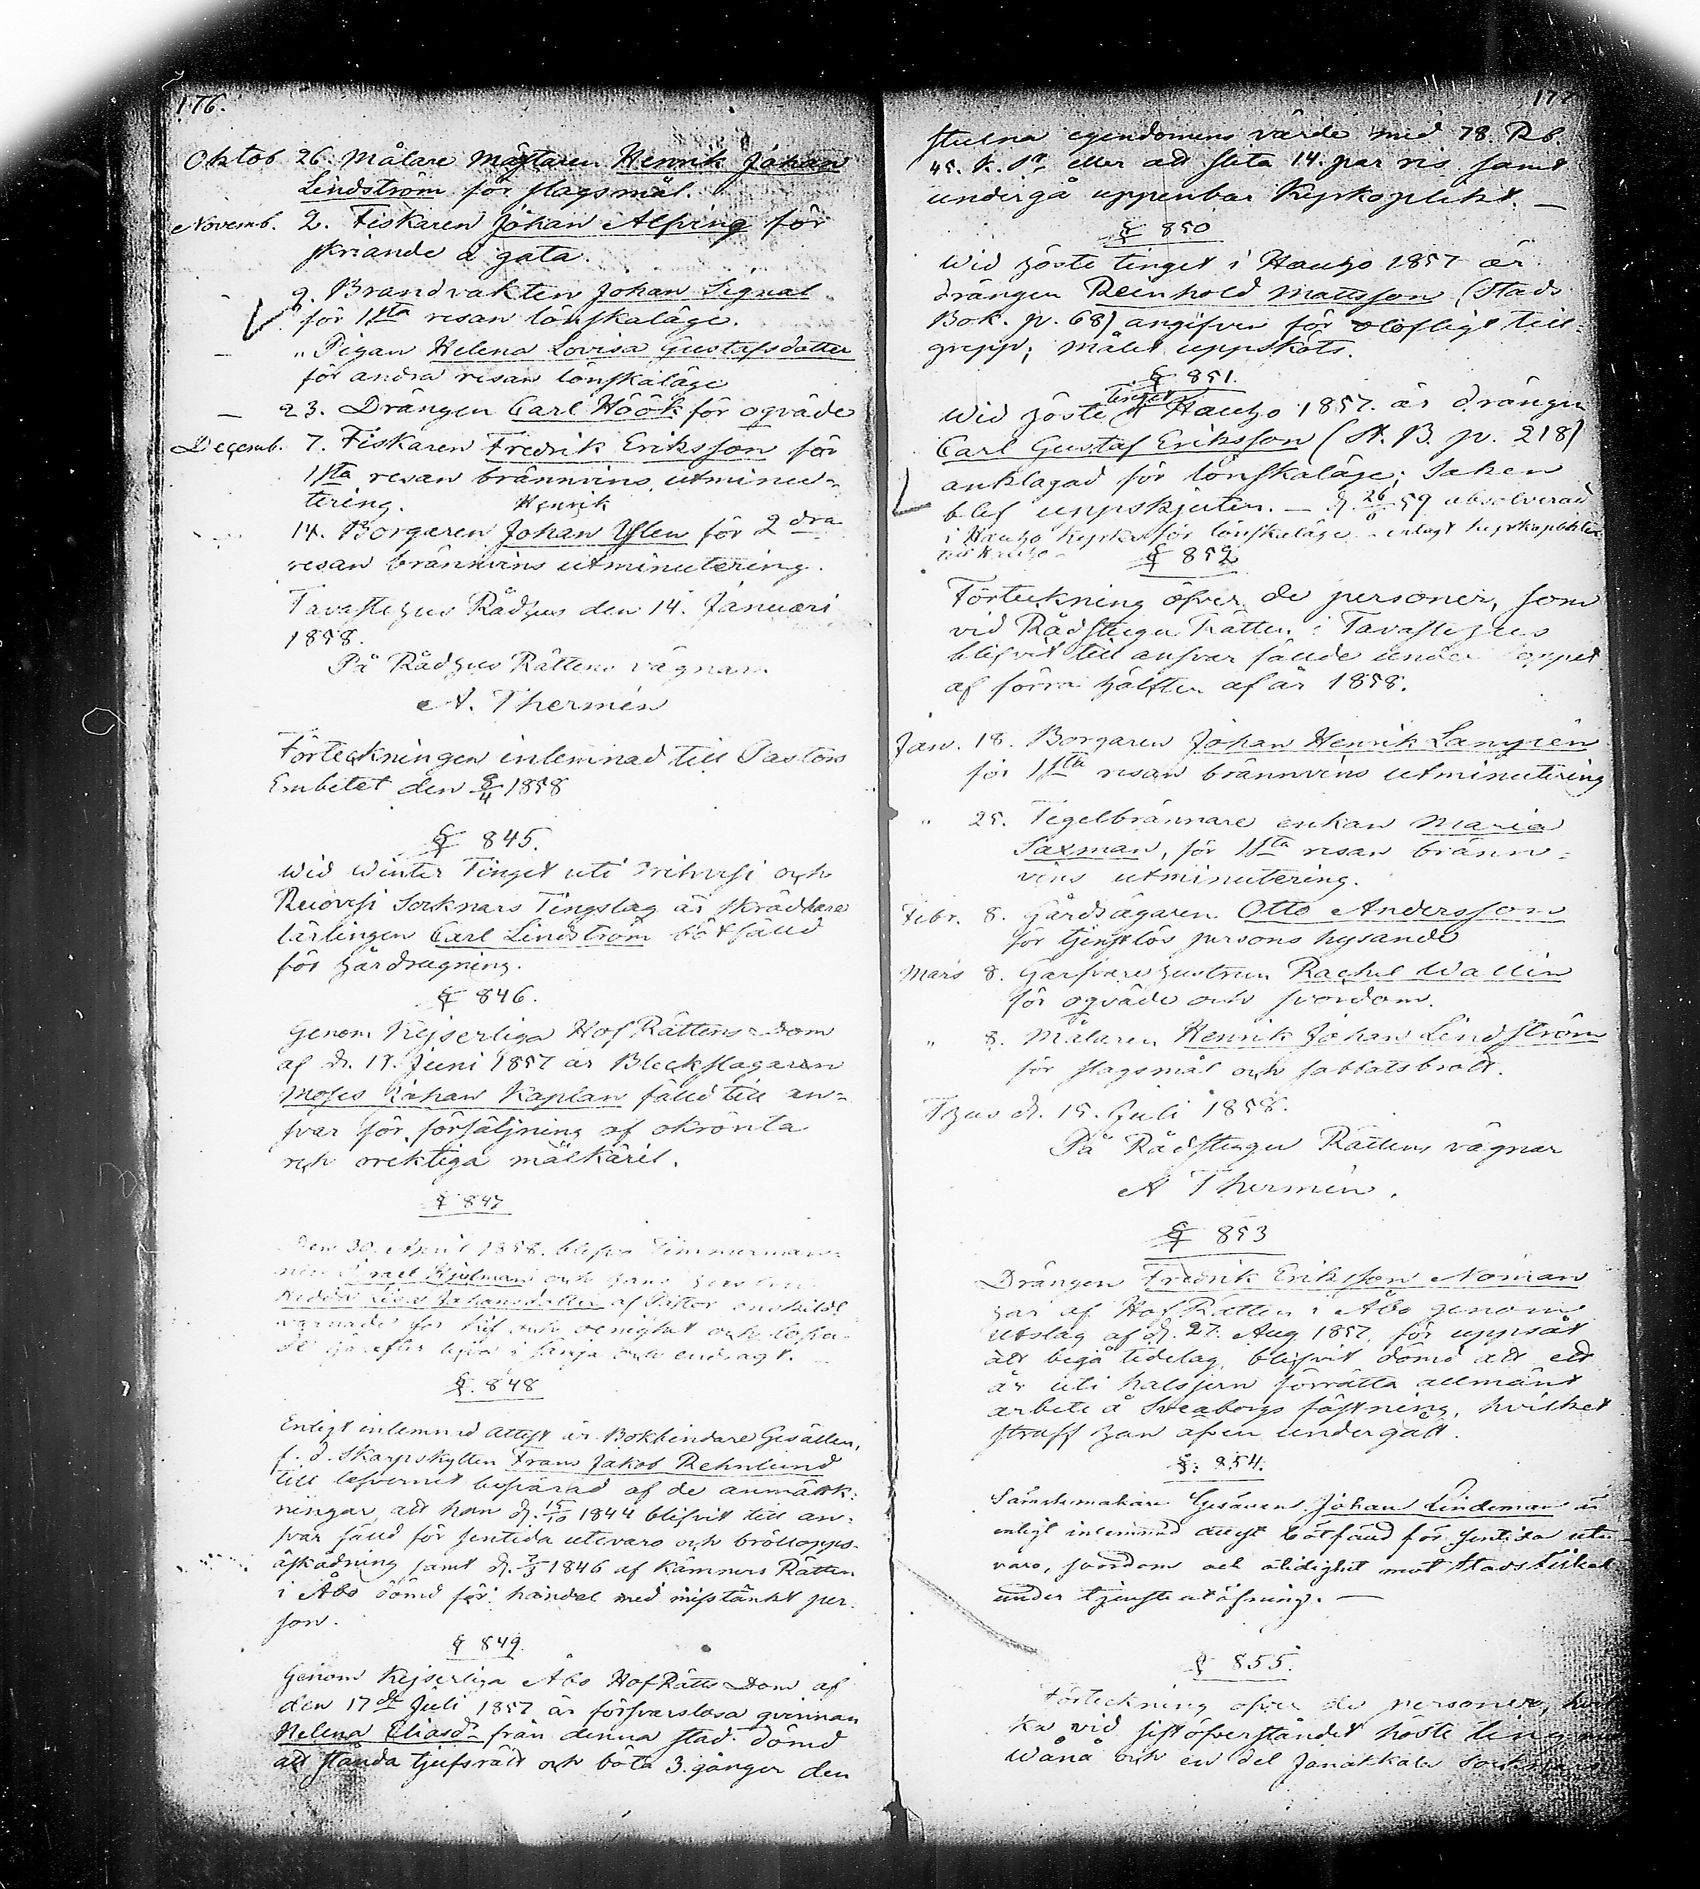 176.
Oktob. 26. Målare Mästaren Henrik Johan
Lindström för slagsmål.
Novemb. 2. Fiskaren Johan Alfving för
skriande å gata.
— 9. Brandvakten Johan Signal
för 1sta resan lönskaläge.
— „ Pigan Helena Lovisa Gustafsdotter
för andra resan lönskaläge
— 23. Drängen Carl Höök för oqväde
Decemb. 7. Fiskaren Fredrik Eriksson för
1sta resan brännvins utminu-
tering. Henrik
14. Borgaren Johan Ylen för 2dra
resan brännvins utminutering.
Tavastehus Rådhus den 14. Januari
1858.
På Rådhus Rättens vägnar
A. Thermén
Förteckningen inlemnad till Pastors
Embetet den 8/4 1858
§ 845.
Wid Winter Tinget uti och
Ruovesi Socknars Tingslag är skräddare
lärlingen Carl Lindström botfälld
för hårdragning.
§ 846.
Genom Kejserliga HofRättens Dom
af d. 17. Juni 1857 är Bleckslagaren
Moses Kaplan fälld till an-
svar för försäljning af okrönta
och orektiga målkäril.
§ 847
Den 30. April 1858. blefvo Timmerman-
nen Israel och hans hustru
Hedda Johansdotter af Pastor enskildt
varnade för kif och oenighet och lofva-
de härefter lefva i sämja och endrägt.
§. 848
Enligt inlemnad attest är Bokbindare Gesällen,
f. d. Skarpskytten Frans Jakob Rehnlund
till lefvernet besvärad af de anmärk-
ningar, att han d. 15/10 1844 blifvit till an-
svar fälld för sentida utevaro och bröllopps-
åskådning samt d. 2/3 1846 af Kämners Rätten
i Åbo dömd för handel med misstänkt per-
son.
§ 849.
Genom Kejserliga Åbo HofRätts Dom af
den 17de Juli 1857 är försvarslösa qvinnan
Helena Eliasdr från denna stad dömd
att stånda tjufsrätt och böta 3. gånger den
177
stulna egendomens värde med 78. Rb.
45. k. Sr eller att slita 14. par ris samt
undergå uppenbar Kyrkoplikt. —
§ 850
Wid höste tinget i Hauho 1857 är
drängen Reinhold Mattsson (Stads
Bok. p. 68) angifven för olofligt till-
grepp; målet uppskots.
§ 851.
Wid höste tinget i Hauho 1857. är drängen
Carl Gustaf Eriksson (St. B. p. 218)
anklagad för lönskaläge; saken
blef uppskjuten. — d. 26/6 59 absolverad
i Hauho kyrka för lönskaläge
§ 852
Förteckning öfver de personer, som
vid Rådstugu Rätten i Tavastehus
blifvit till ansvar fällde under loppet
af förra hälften af år 1858.
Jan. 18. Borgaren Johan Henrik Langién
för 1sta resan brännvins utminutering
„ 25. Tegelbrännare enkan Maria
Saxman, för 1sta resan bränn-
vins utminutering.
Febr. 8. Gårdsägaren Otto Andersson
för tjenstlös persons hysande
Mars 8. Garfvare hustrun Rachel Wallin
för oqväde och svordom.
„ 8. Målaren Henrik Johan Lindström
för slagsmål och sabbatsbrott.
Thus d. 15. Juli 1858.
På Rådstugu Rättens vägnar
A Thermén.
§ 853
Drängen Fredrik Eriksson Norman
har af HofRätten i Åbo genom
utslag af d. 27. Aug 1857, för uppsåt
att begå tidelag, blifvit dömd att ett
år uti halsjern förrätta allmänt
arbete å Sveaborgs fästning, hvilket
straff han äfven undergått.
§: 854.
Sämskmakare Gesällen Johan Lindeman är
enligt inlemnad attest botfälld för sentida ute
varo, svordom och olidighet mot Stadsfiskal
under tjensteutöfning. —
§ 855.
Förteckning öfver de personer, hvil
ka vid sistöfverståndet höste ting med
Wånå och en del Janakkala Socknars